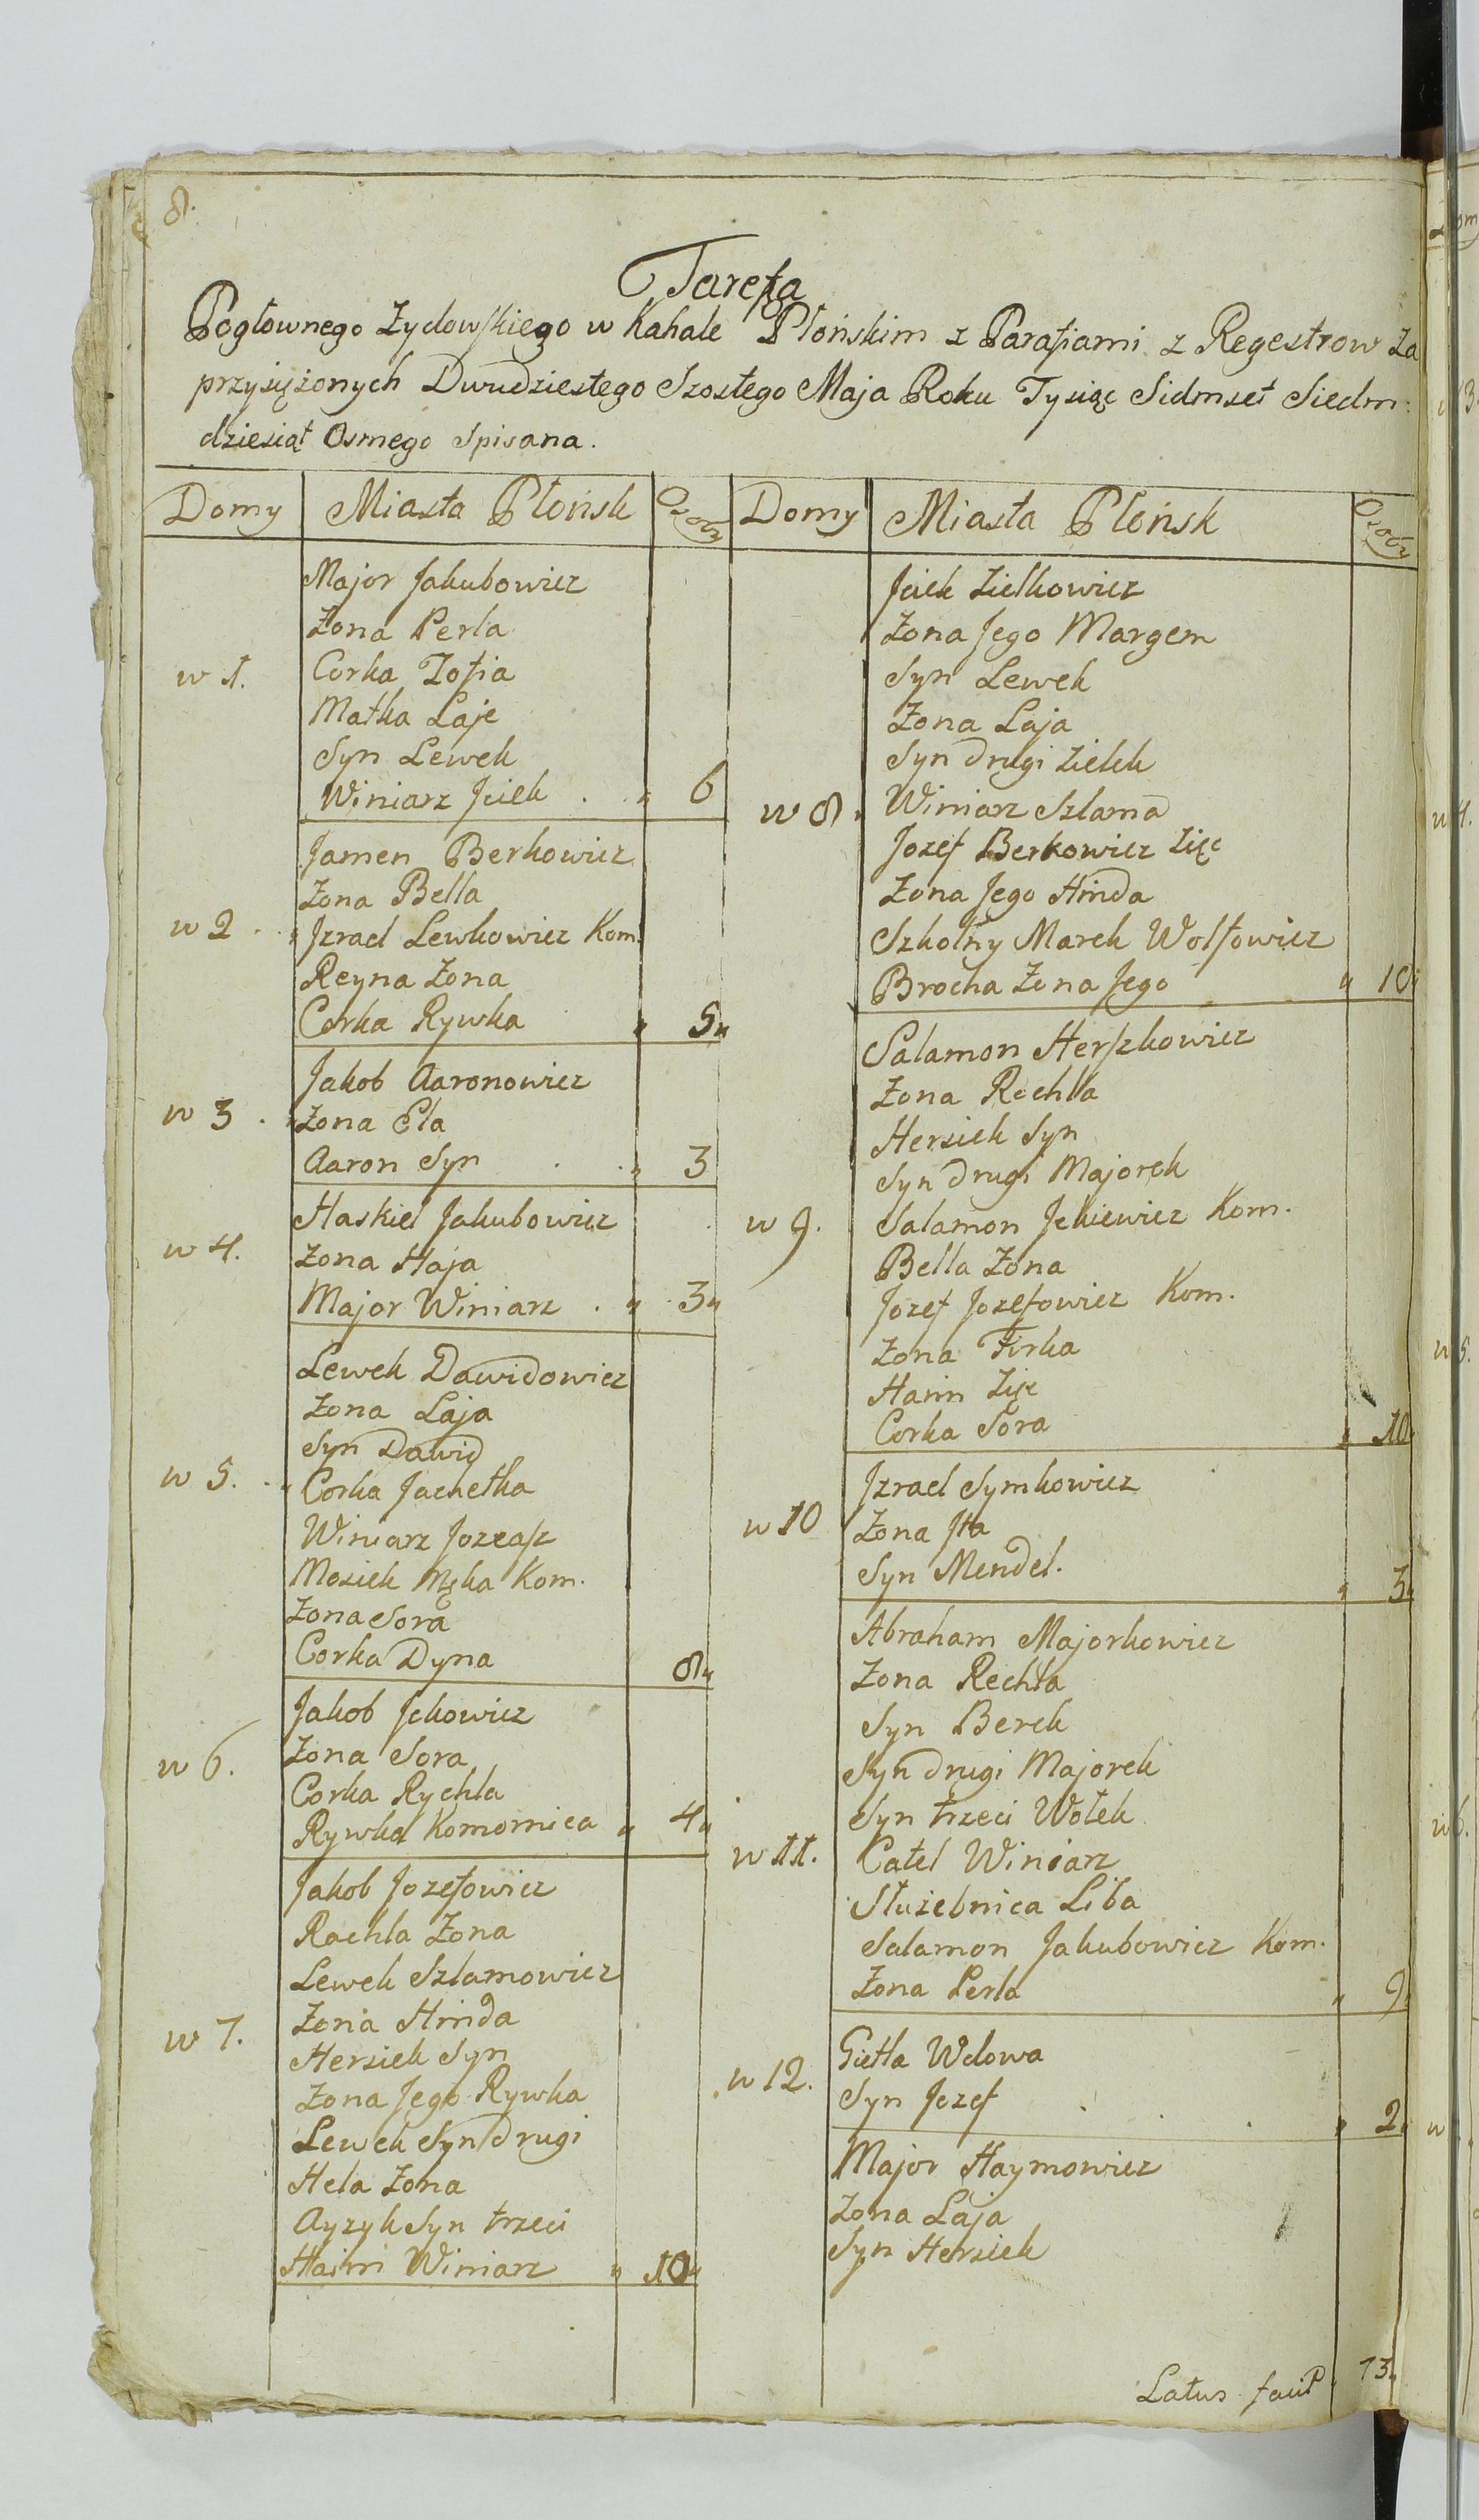 8.
Tarefa
Pogłownego Żydowskiego w Kahale Płońskim z Parafiami z Regestrow za
przysiężonych Dwudziestego Szostego Maja Roku Tysiąc Sidmset Siedm
dziesiąt Osmego Spisana.
Domy Miasta Płońsk Osoby
Major Jakubowicz
Zona Perla
w 1. Corka Zofia
Matka Laje
Syn Lewek
Winiarz Jciek 6
Jamen Berkowicz
Zona Bella
w 2 Jzrael Lewkowicz Kom.
Reyna Zona
Corka Rywka 5
Jakob Aaronowicz
w 3 Zona Ela
Aaron Syn 3
Haskiel Jakubowicz
w 4. Zona Haja
Major Winiarz 3
Lewek Dawidowicz
Zona Laja
Syn Dawid
w 5. Corka Jachetka
Winiarz
Mosiek Kom.
Zona Sora
Corka Dyna 8
Jakob Jckowicz
w 6. Zona Sora
Corka Rychla
Rywka Komornica 4
Jakob Jozefowicz
Rachla Zona
Lewek Szlamowicz
w 7. Zona Hinda
Hersiek Syn
Zona Jego Rywka
Lewek Syn drugi
Hela Zona
Ayzyk Syn trzeci
Haim Winiarz 10
Domy Miasta Płońsk Osoby
Jciek Zielkowicz
Zona Jego Margem
Syn Lewek
Zona Laja
Syn drugi Zielek
w 8. Winiarz Szlama
Jozef Berkowicz Zięc
Zona Jego Hinda
Szkolny Marek Wolfowicz
Brocha Zona Jego 10
Salamon Herszkowicz
Zona Rochla
Hersiek Syn
Syn drugi Majorek
w 9. Salamon Jckiewicz Kom.
Bella Zona
Jozef Jozefowicz Kom.
Zona Firka
Haim Zięc
Corka Sora 10
Jzrael Symkowicz
w 10 Zona Jtta
Syn Mendel. 3
Abraham Majorkowicz
Zona Rechla
Syn Berek
Syn drugi Majorek
Syn trzeci Wolek
w 11. Catel Winiarz
Służebnica Liba
Salamon Jakubowicz Kom.
Zona Perla 9
Gietla Wdowa
w 12. Syn Jozef 2
Major Haymowicz
Zona Laja
Syn Hersiek
Latus facit 73